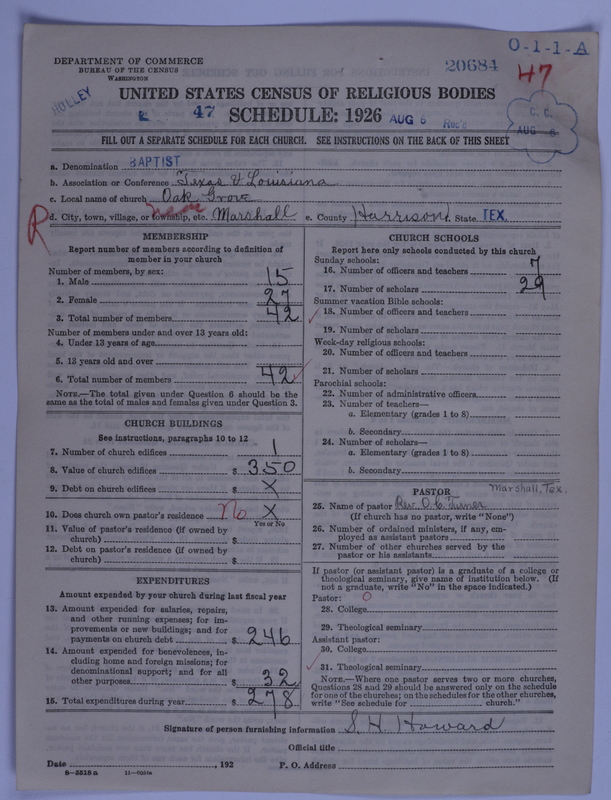 DEPARTMENT OF COMMERCE
BUREAU OF THE CENSUS
WASHINGTON
20684
O-1-1-A
47
HOLLEY
UNITED STATES CENSUS OF RELIGIOUS BODIES
47 SCHEDULE: 1926 AUG 6 Rec'd
C. C.
AUG 6
FILL OUT A SEPARATE SCHEDULE FOR EACH CHURCH. SEE INSTRUCTIONS ON THE BACK OF THIS SHEET
a. Denomination BAPTIST
b. Association or Conference Texas & Louisiana
c. Local name of church Oak Grove
R
d. City, town, village, or township, etc. Marshall e. County Harrison State TEX.
MEMBERSHIP
Report number of members according to definition of
member in your church
Number of members, by sex:
1. Male 15
2. Female 27
3. Total number of members 42
Number of members under and over 13 years old:
4. Under 13 years of age
5. 13 years old and over
6. Total number of members 42
NOTE.—The total given under Question 6 should be the
same as the total of males and females given under Question 3.
CHURCH BUILDINGS
See instructions, paragraphs 10 to 12
7. Number of church edifices 1
8. Value of church edifices $ 350
9. Debt on church edifices $ X
10. Does church own pastor's residence No X
Yes or No
11. Value of pastor's residence (if owned by
church) $
12. Debt on pastor's residence (if owned by
church) $
EXPENDITURES
Amount expended by your church during last fiscal year
13. Amount expended for salaries, repairs,
and other running expenses; for im-
provements or new buildings; and for
payments on church debt $ 246
14. Amount expended for benevolences, in-
cluding home and foreign missions; for
denominational support; and for all
other purposes $ 32
15. Total expenditures during year $ 278
CHURCH SCHOOLS
Report here only schools conducted by this church
Sunday schools:
16. Number of officers and teachers 7
17. Number of scholars 29
Summer vacation Bible schools:
18. Number of officers and teachers
19. Number of scholars
Week-day religious schools:
20. Number of officers and teachers
21. Number of scholars
Parochial schools:
22. Number of administrative officers
23. Number of teachers—
a. Elementary (grades 1 to 8)
b. Secondary
24. Number of scholars—
a. Elementary (grades 1 to 8)
b. Secondary
PASTOR Marshall, Tex.
25. Name of pastor Rev. O. C. Turner
(If church has no pastor, write "None")
26. Number of ordained ministers, if any, em-
ployed as assistant pastors
27. Number of other churches served by the
pastor or his assistants
If pastor (or assistant pastor) is a graduate of a college or
theological seminary, give name of institution below. (If
not a graduate, write "No" in the space indicated.)
Pastor: O
28. College
29. Theological seminary
Assistant pastor:
30. College
31. Theological seminary
NOTE.—Where one pastor serves two or more churches,
Questions 28 and 29 should be answered only on the schedule
for one of the churches; on the schedules for the other churches,
write "See schedule for church."
Signature of person furnishing information S. H. Howard
Official title
Date , 192 P. O. Address
8-3518a 11-9051a